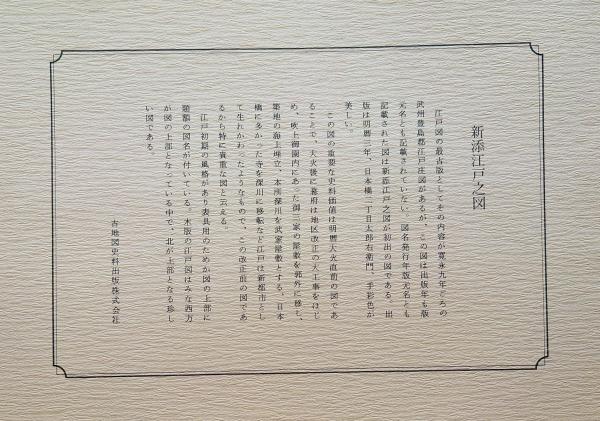 新添江戸之図
江戸図の最古版としてその内容が寛永九年ごろの
武州豊島郡江戸庄図があるが、この図は出版年も版
元名とも記載されていない。図名発行年版元名とも
記載された図は新添江戸之図が初出の図である。出
版は明暦三年、日本橋二丁目太郎右衛門、手彩色が
美しい。
この図の重要な史料価値は明暦大火直前の図であ
ることで、大火後に幕府は地区改正の大工事をはじ
め、吹上御園内にあった御三家の屋敷を郭外に移し、
築地の海上埋立、本所深川を武家屋敷とする、日本
橋に多かった寺を深川に移転など江戸は新都市とし
て生れかわったようなもので、この改正前の図であ
るから特に貴重な図と云える。
江戸初期の風格があり表具用のためか図の上部に
題額の図名が付いている。木版の江戸図はみな西方
が図の上部となっている中で、北が上部となる珍し
い図である。
古地図史料出版株式会社